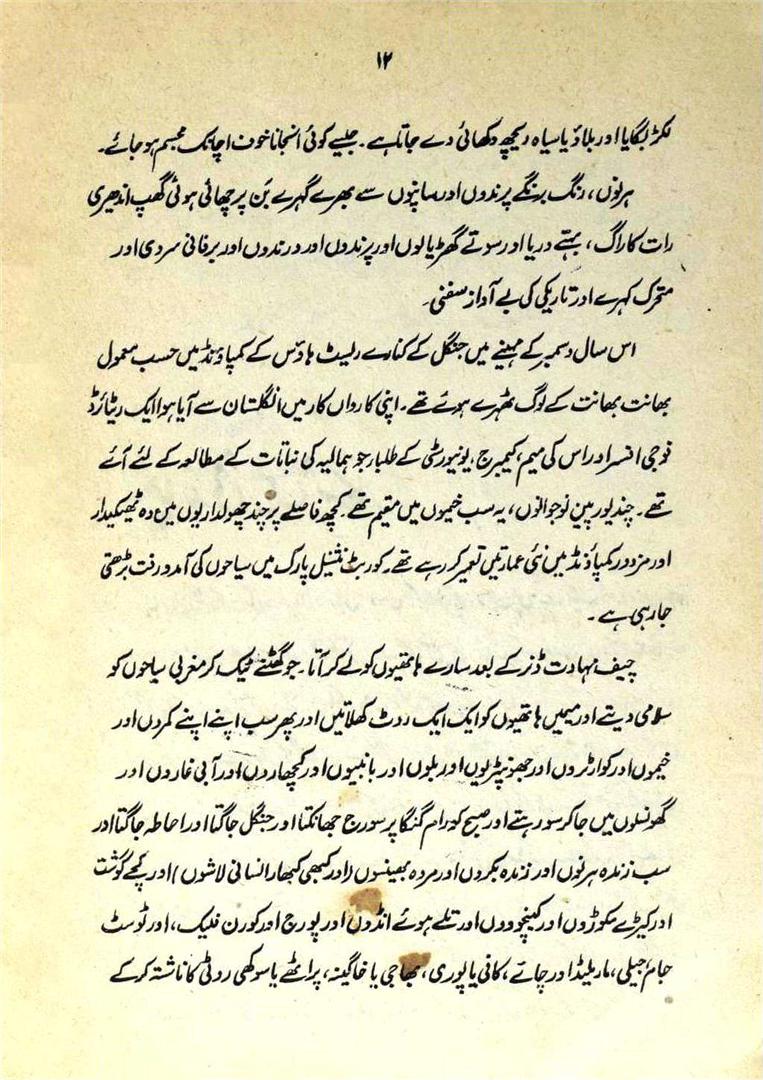 ۱۲
لکڑ بگایا اور بلاؤ یا سیاہ ریچھ دکھائی دے جاتا ہے۔ جیسے کوئی انجانا خون اچانک مجسم ہو جائے۔
ہرنوں، رنگ برنگے پرندوں اور سانپوں سے بھرے گہرے بَن پر چھائی ہوئی گھپ اندھیری
رات کا راگ، بہتے دریا اور سوتے گھڑیالوں اور پرندوں اور درندوں اور برفانی سردی اور
متحرک کہرے اور تاریکی کی بے آواز سمفنی۔
اس سال دسمبر کے مہینے میں جنگل کے کنارے ریسٹ ہاؤس کے کمپاؤنڈ میں حسب معمول
بھانت بھانت کے لوگ ٹھہرے ہوئے تھے۔ اپنی کارواں کار میں انگلستان سے آیا ہوا ایک ریٹائرڈ
فوجی افسر اور اس کی میم، کیمبرج، یونیورسٹی کے طلبا، جو ہمالیہ کی نباتات کے مطالعہ کے لئے آئے
تھے۔ چند یورپین نوجوانوں، یہ سب خیموں میں مقیم تھے۔ کچھ فاصلے پر چند چھولداریوں میں دہ ٹھیکیدار
اور مزدور کمپاؤنڈ میں نئی عمارتیں تعمیر کر رہے تھے۔ کوربٹ نشنیل پارک میں سیاحوں کی آمد و رفت بڑھتی
جا رہی ہے۔
چیف مہاوت ڈنر کے بعد سارے ہاتھیوں کو لے کر آتا۔ جو گھٹنے ٹیک کر مغربی سیاحوں کو
سلامی دیتے اور میمیں ہاتھیوں کو ایک ایک روٹ کھلاتیں اور پھر سب اپنے اپنے کمروں اور
خیموں اور کوارٹروں اور جھونپڑیوں اور بلوں اور بانبیوں اور کچھاروں اور آبی غاروں اور
گھونسلوں میں جا کر سو رہتے اور صبح کو رام گنگا پر سورج جھانکتا اور جنگل جاگتا اور احاطہ جاگتا اور
سب زندہ ہرنوں اور زندہ بکروں اور مردہ بھینسوں (اور کبھی کبھار انسانی لاشوں) اور کچے گوشت
اور کیڑے مکوڑوں اور کینچووں اور تلے ہوئے انڈوں اور پورج اور کورن فلیک، اور ٹوسٹ
جام، جیلی، مارملیڈ اور چائے، کافی یا پوری، بھاجی یا خاگینہ، پراٹھے یا سوکھی روٹی کا ناشتہ کر کے